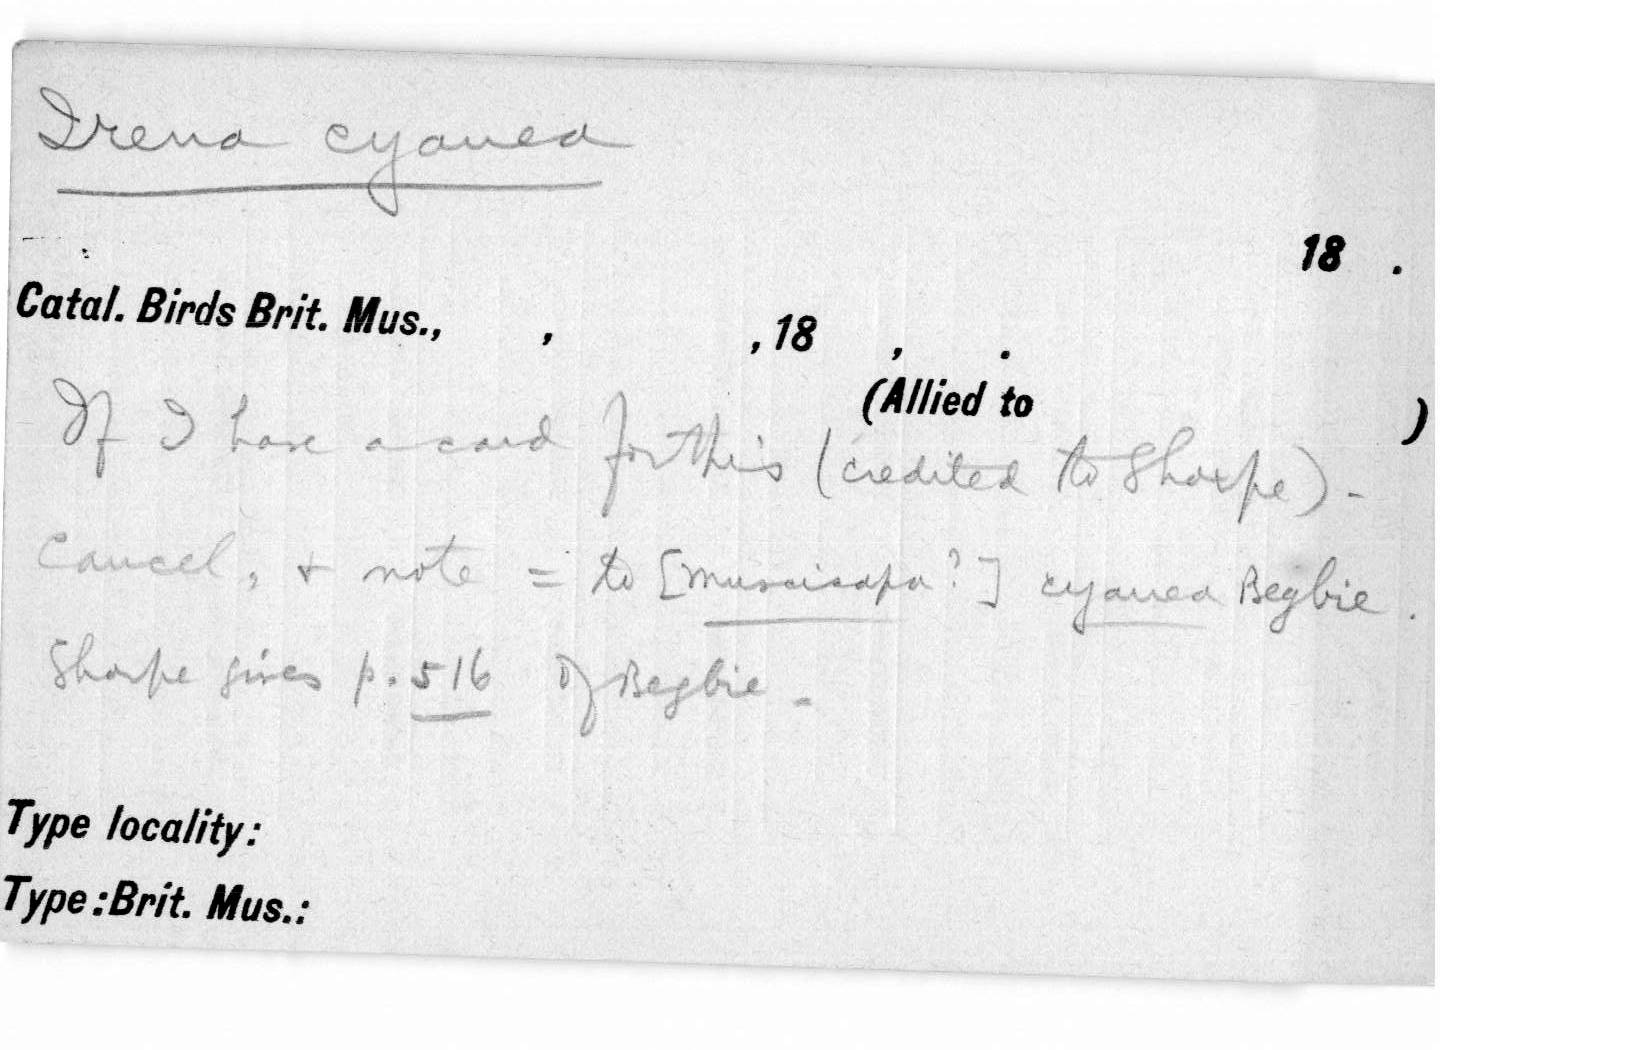 Irena cyanea
18 .
Catal. Birds Brit. Mus., , , 18 , .
(Allied to )
If I have a card for this (credited to Sharpe) -
Cancel, & note = to [Muscicapa?] cyanea Begbie.
Sharpe gives p. 516 of Begbie -
Type locality:
Type: Brit. Mus.: